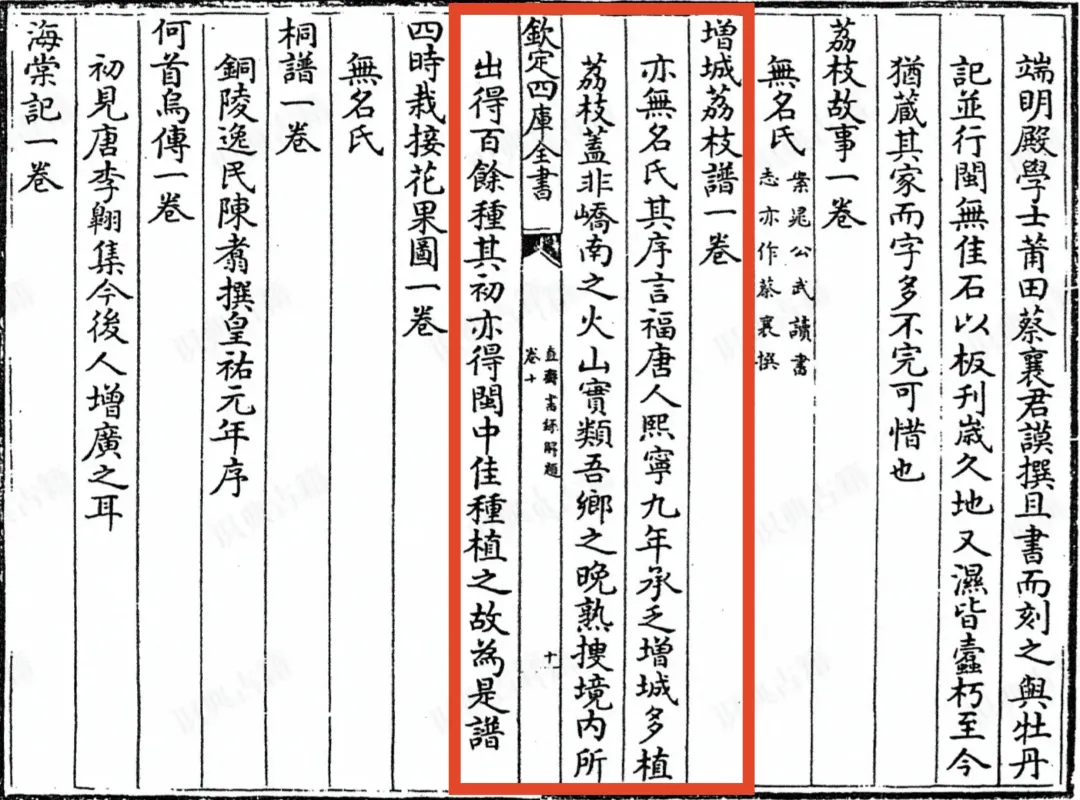 端明殿學士莆田蔡襄君謨撰且書而刻之與牡丹
記並行閩無佳石以板刋歲久地又濕皆蠧朽至今
猶蔵其家而字多不完可惜也
荔枝故事一卷
無名氏案晁公武讀書志亦作蔡襄撰
增城荔枝譜一卷
亦無名氏其序言福唐人熙寧九年承乏增城多植
荔枝蓋非嶠南之火山實類吾鄉之晩熟搜境内所
欽定四庫全書
直齋書録解題
卷十
十
出得百餘種其初亦得閩中佳種植之故為是譜
四時栽接花果圖一卷
無名氏
桐譜一卷
銅陵逸民陳翥撰皇祐元年序
何首烏傳一卷
初見唐李翺集今後人增廣之耳
海棠記一卷